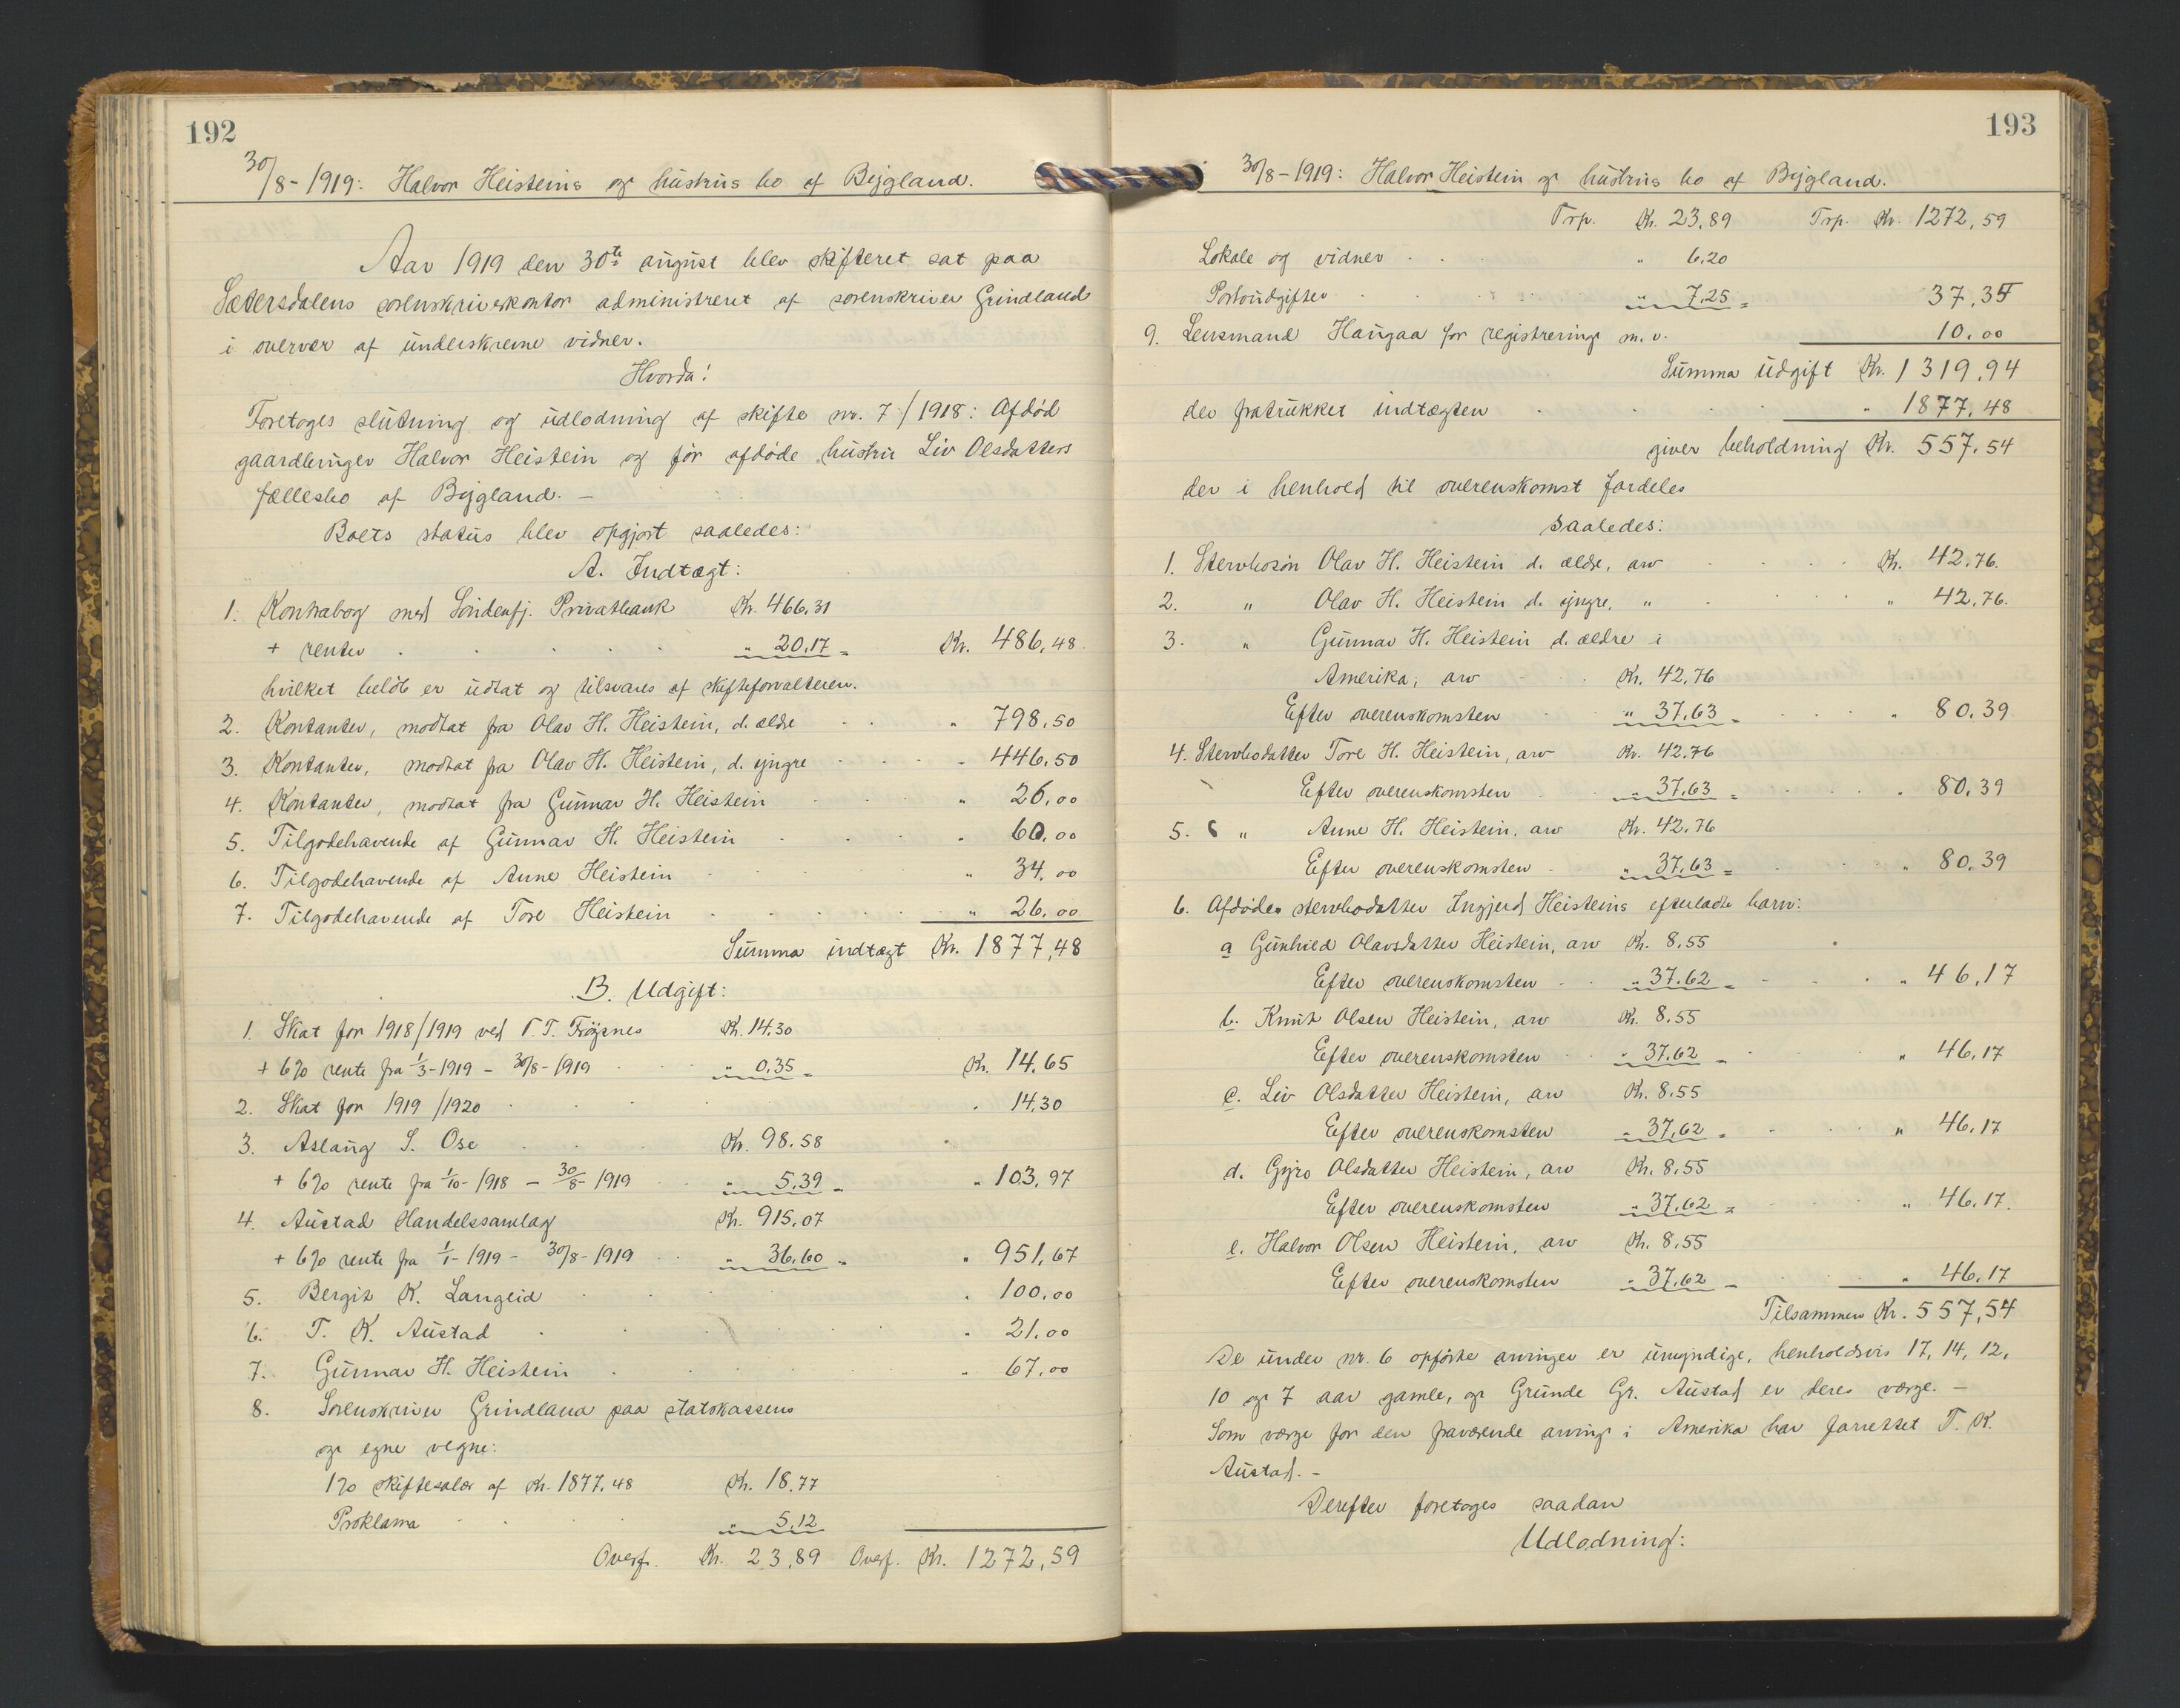 192
30/8-1919: Halvor Heisteins og hustrus bo af Bygland.
Aar 1919 den 30te august blev skifteret sat paa
Sætersdalens sorenskriverkontor administreret af sorenskriver Grindland
i overvær af underskrevne vidner.
Hvorda!
Foretoges slutning og udlodning af skifte nr. 7/1918: Afdød
gaardbruger Halvor Heistein og før afdøde hustru Liv Olsdatters
fællesbo af Bygland. —
Boets status blev opgjort saaledes:
A. Indtægt:
1. Kontrabog med Söndenfj. Privatbank Kr. 466.31
+ renter . . . . . " 20.17 = Kr. 486,48
hvilket beløb er udtat og tilsvares af skifteforvalteren.
2. Kontanter, modtat fra Olav H. Heistein, d. eldre . . " 798,50
3. Kontanter, modtat fra Olav H. Heistein, d. yngre . . . " 446,50
4. Kontanter, modtat fra Gunnar H. Heistein . . . " 26,00
5. Tilgodehavende af Gunnar H. Heistein . . . " 60,00
6. Tilgodehavende af Anne Heistein . . . " 34,00
7. Tilgodehavende af Tore Heistein . . . . . " 26,00
Summa indtægt Kr. 1877,48
B. Udgift:
1. Skat for 1918/1919 ved T. T. Frøysnes Kr. 14.30
+ 6% rente fra 1/3-1919 - 30/8-1919 . " 0.35 = Kr. 14,65
2. Skat for 1919/1920 . . . " 14,30
3. Aslaug S. Ose . . . Kr. 98.58
+ 6% rente fra 1/10-1918 - 30/8-1919 . " 5,39 = " 103,97
4. Austad Handelssamlag Kr. 915,07
+ 6% rente fra 1/1-1919 - 30/8-1919 . . " 36,60 = " 951,67
5. Bergit K. Langeid . . . . " 100,00
6. T. K. Austad . . . . . " 21,00
7. Gunnar H. Heistein . . . . " 67,00
8. Sorenskriver Grindland paa statskassens
og egne vegne:
1% skiftesalær af Kr. 1877.48 Kr. 18.77
Proklama . . . " 5,12
Overf. Kr. 23,89 Overf. Kr. 1272,59
193
30/8-1919: Halvor Heistein og hustrus bo af Bygland.
Trp. Kr. 23,89 Trp. Kr. 1272,59
Lokale og vidner . . . " 6.20
Portoudgifter . . . . " 7,25 = 37,35
9. Lensmand Haugaa for registrering m. v. 10,00
Summa udgift Kr. 1319,94
der fratrukket indtægten . . . . . " 1877,48
giver beholdning Kr. 557,54
der i henhold til overenskomst fordeles
saaledes:
1. Stervbosøn Olav H. Heistein d. ældre, arv . . . . Kr. 42,76.
2. " Olav H. Heistein d. yngre, " . . . . " 42,76.
3. " Gunnar H. Heistein d. ældre i
Amerika, arv . . . Kr. 42,76
Efter overenskomsten . . " 37,63 = . . . . " 80,39
4. Stervbodatter Tore H. Heistein, arv Kr. 42,76
Efter overenskomsten . . " 37,63 = . . . . " 80,39
5. " Anne H. Heistein, arv Kr. 42,76
Efter overenskomsten . . " 37,63 = . . . " 80,39
6. Afdøde stervbodatter Ingjerd Heisteins efterladte barn:
a Gunhild Olavsdatter Heistein, arv Kr. 8,55
Efter overenskomsten . . " 37,62 = . . . " 46,17
b. Knut Olsen Heistein, arv Kr. 8,55
Efter overenskomsten . . " 37,62 = . . . " 46,17
c. Liv Olsdatter Heistein, arv Kr. 8,55
Efter overenskomsten " 37,62 = . . . " 46,17
d. Gyro Olsdatter Heistein, arv Kr. 8,55
Efter overenskomsten " 37,62 = . . . " 46,17.
e. Halvor Olsen Heistein, arv Kr. 8,55
Efter overenskomsten " 37,62 = . . . " 46,17
Tilsammen Kr. 557,54
De under nr. 6 opførte arvinger er umyndige, henholdsvis 17, 14, 12,
10 og 7 aar gamle, og Grunde Gr. Austad er deres verge. —
Som verge for den fraværende arving i Amerika har forrettet T. K.
Austad. —
Derefter foretoges saadan
Udlodning: